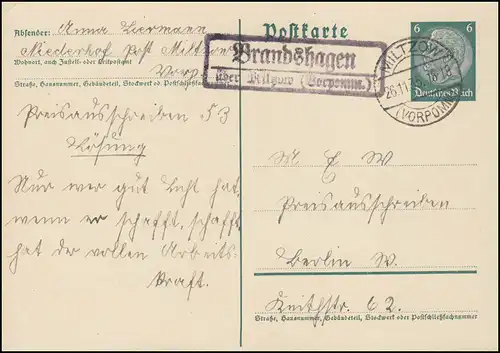 Absender: Anna Liermann
Niederhof Post Miltzow
Wohnort, auch Zustell- oder Leitpostamt
Vorp.
Straße, Hausnummer, Gebäudeteil, Stockwerk od. Postschließfach
Postkarte
Brandshagen
über Miltzow (Vorpomm.)
MILTZOW
26.11.
(VORPOMM)
6 6
Deutsches Reich
Preisausschreiben 53
Lösung
Nur wer gut Licht hat,
wenn er schafft, schafft
hat der vollen Arbeits-
kraft.
M. E W
Preisausschreiben
Berlin W.
Keithstr. 62.
Straße, Hausnummer, Gebäudeteil, Stockwerk oder Postschließfachnummer